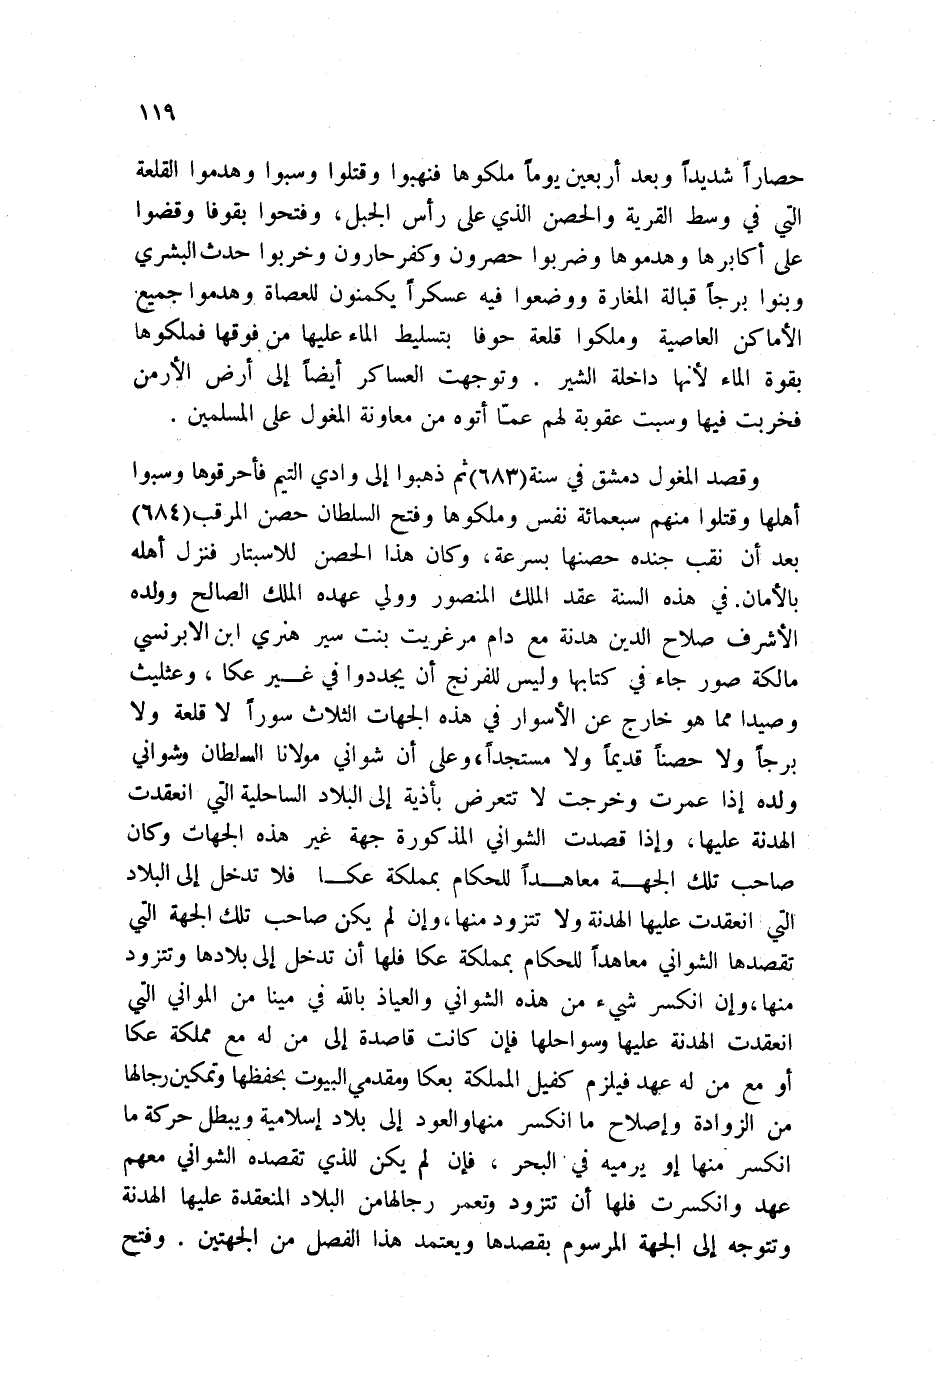 ١١٩
حصاراً شديداً وبعد أربعين يوماً ملكوها فنهبوا وقتلوا وسبوا وهدموا القلعة
التي في وسط القرية والحصن الذي على رأس الجبل، وفتحوا بقوفا وقضوا
على أكابرها وهدموها وضربوا حصرون وكفرحارون وخربوا حدث البشري
وبنوا برجاً قبالة المغارة ووضعوا فيه عسكراً يكمنون للعصاة وهدموا جميع
الأماكن العاصية وملكوا قلعة حوفا بتسليط الماء عليها من فوقها فملكوها
بقوة الماء لأنها داخلة الشير . وتوجهت العساكر أيضاً إلى أرض الأرمن
فخربت فيها وسبت عقوبة لهم عمّا أتوه من معاونة المغول على المسلمين .
وقصد المغول دمشق في سنة (٦٨٣) ثم ذهبوا إلى وادي التيم فأحرقوها وسبوا
أهلها وقتلوا منهم سبعمائة نفس وملكوها وفتح السلطان حصن المرقب (٦٨٤)
بعد أن نقب جنده حصنها بسرعة، وكان هذا الحصن للاسبتار فنزل أهله
بالأمان. في هذه السنة عقد الملك المنصور وولي عهده الملك الصالح وولده
الأشرف صلاح الدين هدنة مع دام مرغريت بنت سير هنري ابن الابرنسي
مالكة صور جاء في كتابها وليس للفرنج أن يجددوا في غـــير عكا ، وعثليث
وصيدا مما هو خارج عن الأسوار في هذه الجهات الثلاث سوراً لا قلعة ولا
برجاً ولا حصناً قديماً ولا مستجداً، وعلى أن شواني مولانا السلطان وشواني
ولده إذا عمرت وخرجت لا تتعرض بأذية إلى البلاد الساحلية التي انعقدت
الهدنة عليها، وإذا قصدت الشواني المذكورة جهة غير هذه الجهات وكان
صاحب تلك الجهـــة معاهـــداً للحكام بمملكة عكـــا فلا تدخل إلى البلاد
التي انعقدت عليها الهدنة ولا تتزود منها، وإن لم يكن صاحب تلك الجهة التي
تقصدها الشواني معاهداً للحكام بمملكة عكا فلها أن تدخل إلى بلادها وتتزود
منها، وإن انكسر شيء من هذه الشواني والعياذ بالله في مينا من المواني التي
انعقدت الهدنة عليها وسواحلها فإن كانت قاصدة إلى من له مع مملكة عكا
أو مع من له عهد فيلزم كفيل المملكة بعكا ومقدمي البيوت بحفظها وتمكين رجالها
من الزوادة وإصلاح ما انكسر منها والعود إلى بلاد إسلامية ويبطل حركة ما
انكسر منها إو يرميه في البحر ، فإن لم يكن للذي تقصده الشواني معهم
عهد وانكسرت فلها أن تتزود وتعمر رجالها من البلاد المنعقدة عليها الهدنة
وتتوجه إلى الجهة المرسوم بقصدها ويعتمد هذا الفصل من الجهتين . وفتح